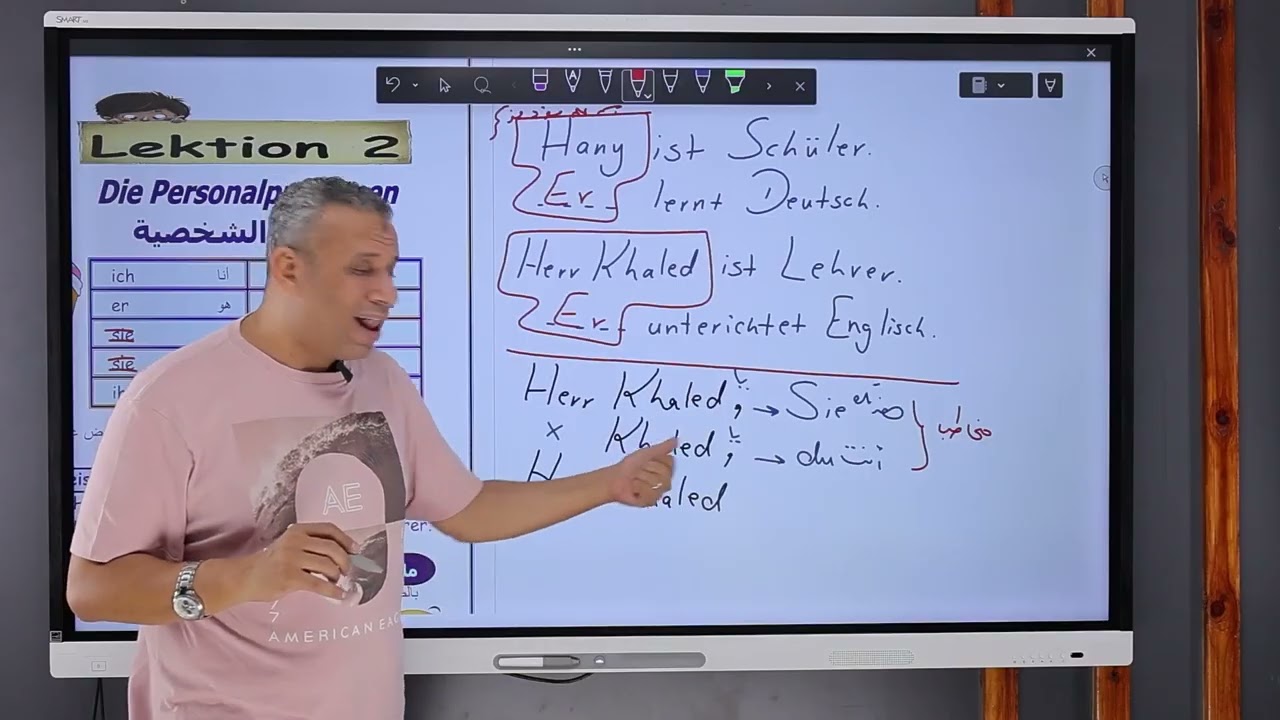 SMART
Lektion 2
Die Personalp en
الشخصية
ich أنا
er هو
sie
sie
Hany ist Schüler.
Er lernt Deutsch.
Herr Khaled ist Lehrer.
Er unterichtet Englisch.
Herr Khaled, يا → Sie
x Khaled, يا → du أنت
H aled
مخاطب
AE
AMERICAN EAG